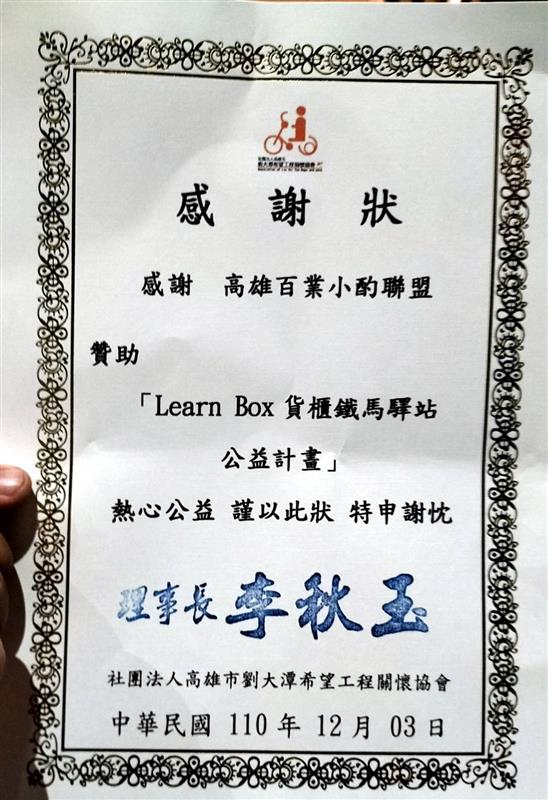 社團法人高雄市
劉大潭希望工程關懷協會
感謝狀
感謝 高雄百業小酌聯盟
贊助
「Learn Box 貨櫃鐵馬驛站
公益計畫」
熱心公益 謹以此狀 特申謝忱
理事長 李秋玉
社團法人高雄市劉大潭希望工程關懷協會
中華民國 110 年 12 月 03 日